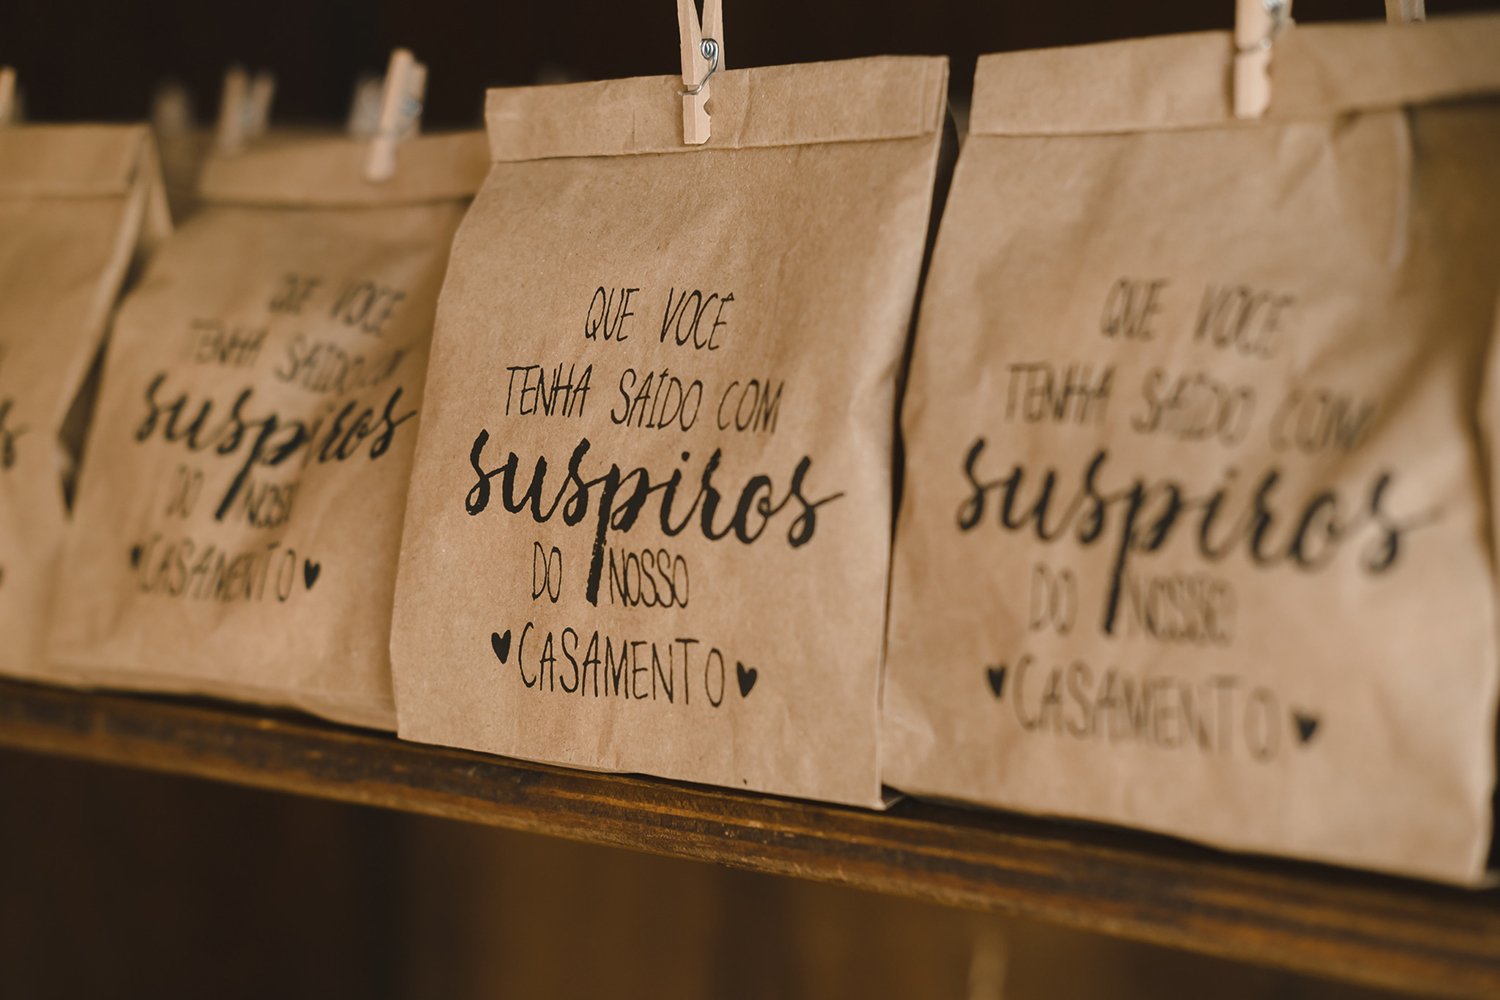 QUE VOCE
TENHA SAÍDO COM
suspiros
DO NOSSO
CASAMENTO
QUE VOCÊ
TENHA SAÍDO COM
suspiros
DO NOSSO
♥ CASAMENTO ♥
QUE VOCÊ
TENHA SAÍDO COM
suspiros
DO NOSSO
♥ CASAMENTO ♥